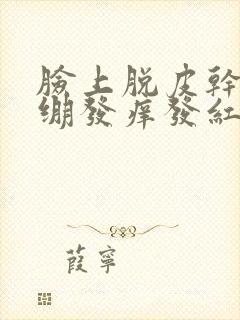 臉上脱皮幹
绷發痒發紅
葭寧